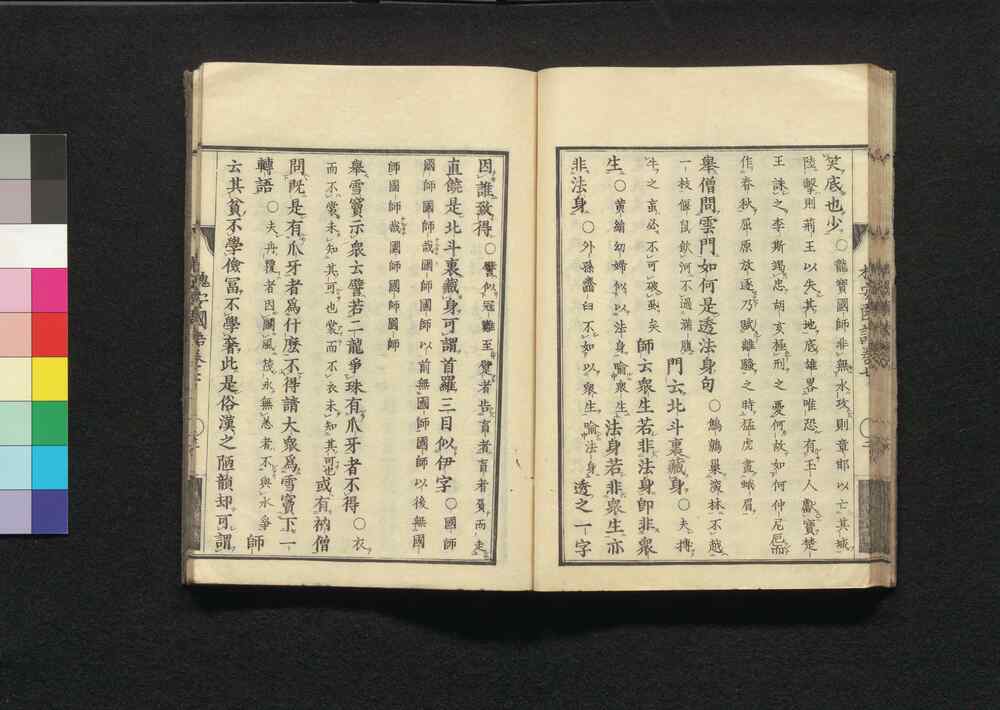 笑底也少。○龍寶國師非無水攻則章邯以亡其城
陸擊則荊王以失其地底雄畧唯恐有王人獻寶楚
王誅之李斯竭忠胡亥極刑之憂何故如何仲尼厄而
作春秋屈原放逐乃賦離騷之時猛虎畫蛾眉
舉僧問雲門如何是透法身句○鷦鷯巢深林不越
一枝偃鼠飲河不過滿腹門云北斗裏藏身○夫搏
牛之蝱必不可破蝨矣師云衆生若非法身即非衆
生○黄絹幼婦似以法身喻衆生法身若非衆生亦
非法身○外孫虀臼不如以衆生喻法身透之一字
因誰致得○譬似冠雖至躄者告盲者盲者負而走
直饒是北斗裏藏身可謂首羅三目似伊字○國師
國師國師哉國師國師以前無國師國師以後無國
師國師哉國師國師國師
舉雪竇示衆云譬若二龍爭珠有爪牙者不得○衣
而不裳未知其可也裳而不衣未知其可也或有衲僧
問既是有爪牙者爲什麽不得請大衆爲雪竇下一
轉語○夫舟覆者因颶風茂永無恙者不與水爭師
云其貧不學儉冨不學奢此是俗漢之陋韻却可謂
槐安國語卷七